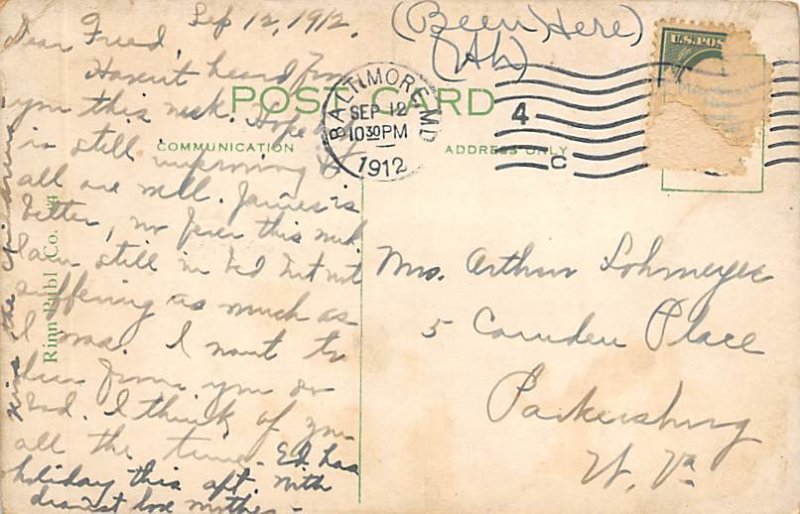 Sep 12, 1912.
(Been Here)
(Ah)
Dear Freed,
Haven't heard from
you this week. Hope
is still improving &
all are well. James is
better, no fever this week
I am still in bed but not
suffering as much as
I was. I want to
hear from you or
Ed. I think of you
all the time. Ed. has
holiday this aft. With
dearest love mother -
POST CARD
COMMUNICATION
ADDRESS ONLY
BALTIMORE, MD
SEP 12
10 30 PM
1912
4
C
U.S. POS
Mrs. Arthur Lohmeyer
5 Camden Place
Parkersburg
W. Va
Rinn Publ Co.
the children